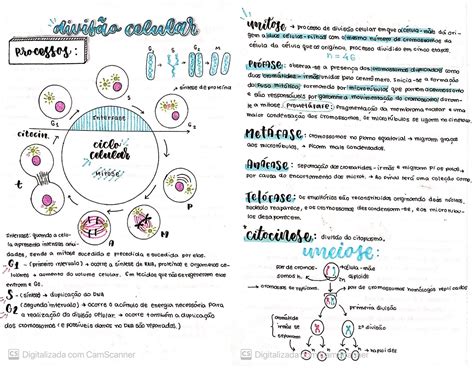 divisão celular
processos:
G1 S G2 M
síntese de proteína
S
G1
G2
interfase
citocin.
ciclo
celular
mitose
t
P
A
M
Interfase: quando a célu-
la apresenta intensas ativi-
dades, sendo a mitose sucedida e precedida e sucedida por elas.
G1 - (primeiro intervalo) → ocorre a síntese de RNA, proteínas e organelas ce-
lulares → aumento do volume celular. Em tecidos que não se regeneram elas
entram a G0.
S - (síntese) → duplicação do DNA
G2 (segundo intervalo) → ocorre o acúmulo de energia necessária para
a realização da divisão celular. → ocorre também a duplicação
dos cromossomos (e possíveis danos no DNA são reparados.)
CS Digitalizada com CamScanner
mitose → processo de divisão celular em que a célula-mãe dá ori-
gem a duas células-filhas com o mesmo número de cromossomos da
célula da célula que as originou, processo dividido em cinco etapas.
n = 46
Prófase: observa-se a presença de cromossomos duplicados como
duas cromátides-irmãs unidas pelo centrômero. Inicia-se a formação
do fuso mitótico formado por microtúbulos que portam o cromossomo
e são responsáveis por a movimentação do cromossomo durante
a mitose. Prometáfase: Fragmentação da membrana nuclear e uma
maior condensação dos cromossomos, os microtúbulos se ligam no cinetócoro.
Metáfase: cromossomos no plano equatorial → migram graças
aos microtúbulos. → Ficam mais condensados.
Anáfase: separação das cromátides-irmãs e migram p/ os polos
por causa do encurtamento dos micro. → Ao final terá uma coleção comp.
Telófase: os envoltórios são reconstituídos originando dois núcleos,
nucléolo reaparece, e os cromossomos descondensam-se, e os microtúbu-
los desaparecem.
*citocinese: divisão do citoplasma.
meiose:
par de cromos-
somos h.
célula-mãe
diploide
cromossomos se replicam.
par de cromossomos homólogos replicados
primeira divisão
cromátide
irmãs se
separam
2ª divisão
haploides
CS Digitalizada com CamScanner